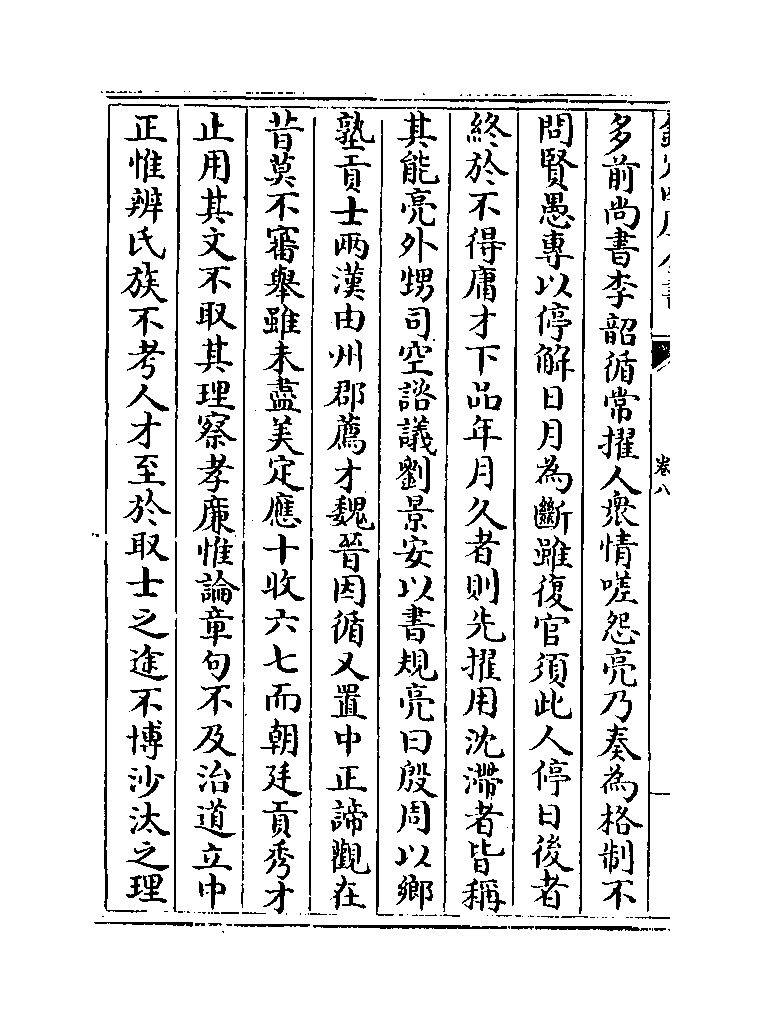 卷八
多前尚書李韶循常擢人衆情嗟怨亮乃奏為格制不
問賢愚專以停解日月為斷雖復官須此人停日後者
終於不得庸才下品年月久者則先擢用沈滯者皆稱
其能亮外甥司空諮議劉景安以書規亮曰殷周以鄉
塾貢士兩漢由州郡薦才魏晉因循又置中正諦觀在
昔莫不審舉雖未盡美定應十收六七而朝廷貢秀才
止用其文不取其理察孝廉惟論章句不及治道立中
正惟辨氏族不考人才至於取士之途不博沙汰之理